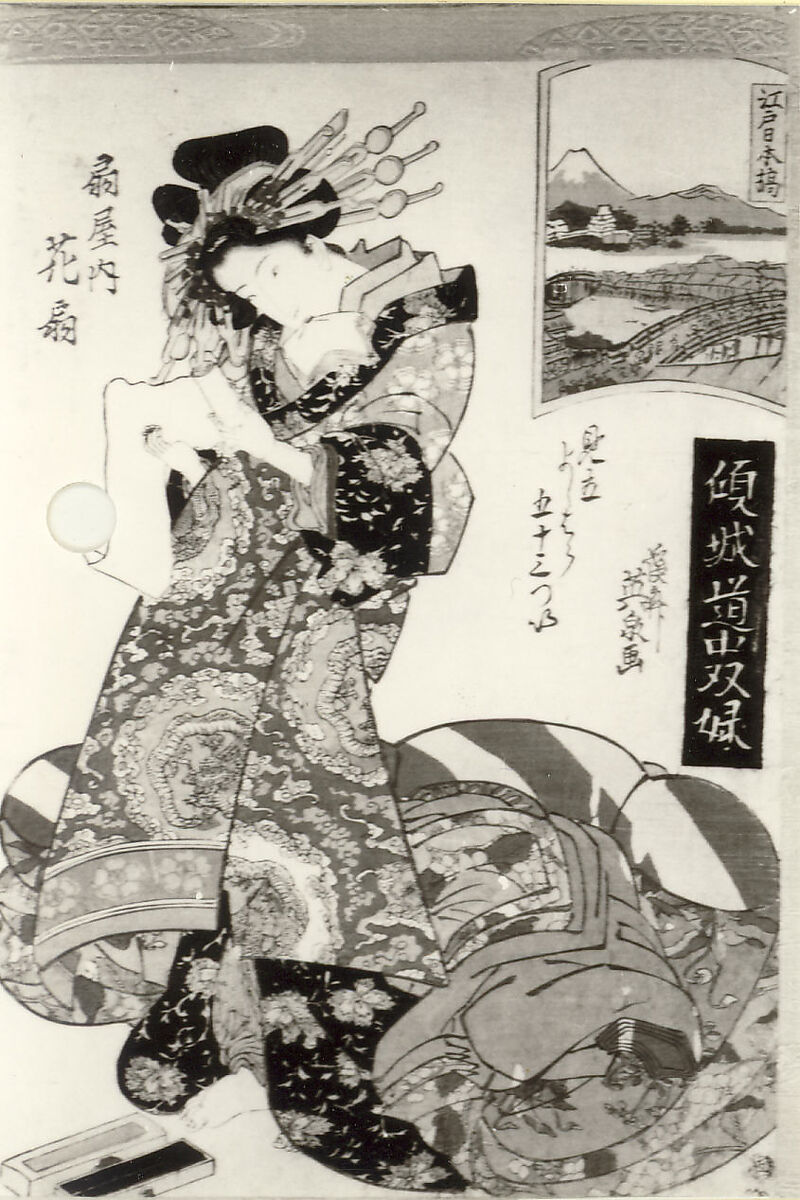 江戸日本橋
傾城道中双六
見立
よしはら
五十三つゐ
渓斎
英泉画
扇屋内
花扇